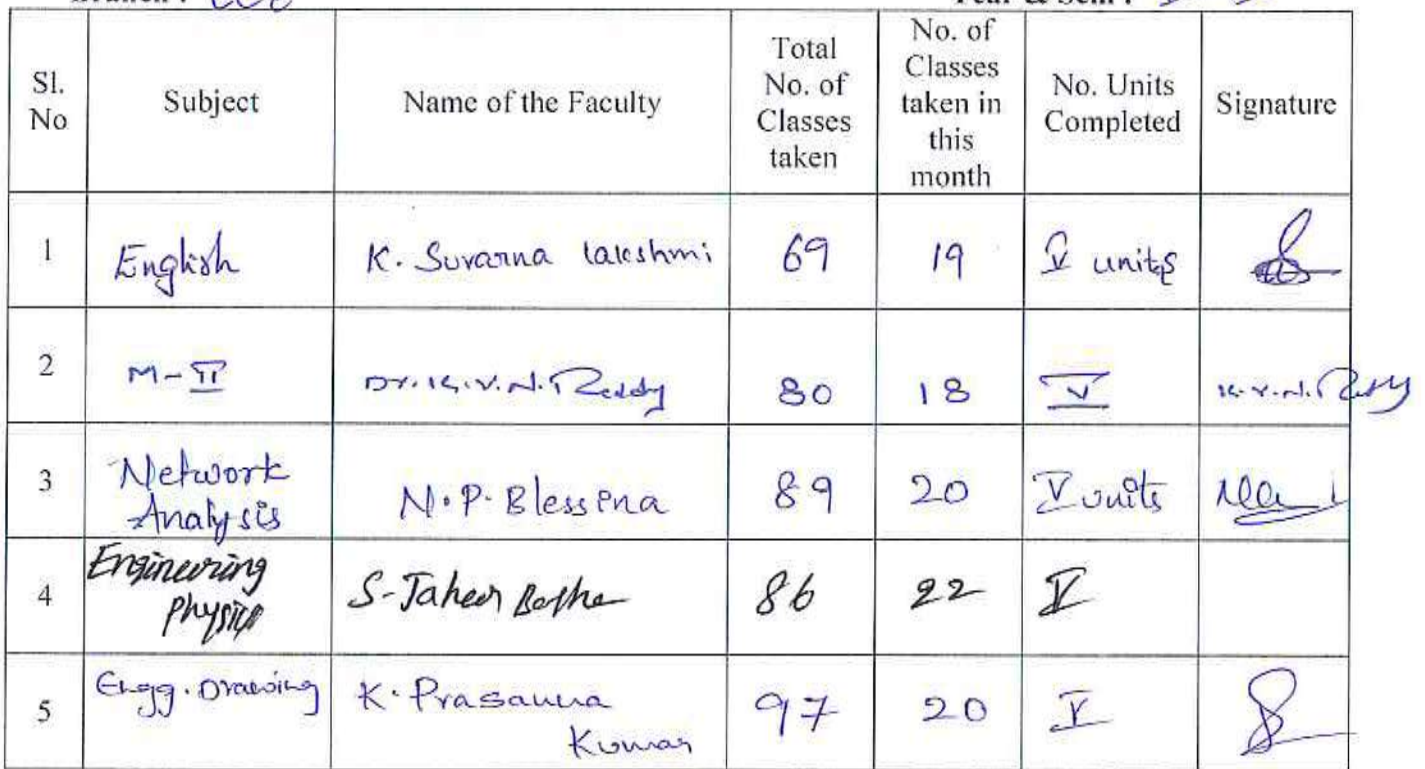 Sl. No Subject Name of the Faculty Total No. of Classes taken No. of Classes taken in this month No. Units Completed Signature
1 English K. Suvarna lakshmi 69 19 V units
2 M-II Dr. K.V.N. Reddy 80 18 V K.V.N. Reddy
3 Network Analysis N.P. Blessina 89 20 V units
4 Engineering Physics S-Taheer 86 22 V
5 Engg. Drawing K. Prasanna Kumar 97 20 V